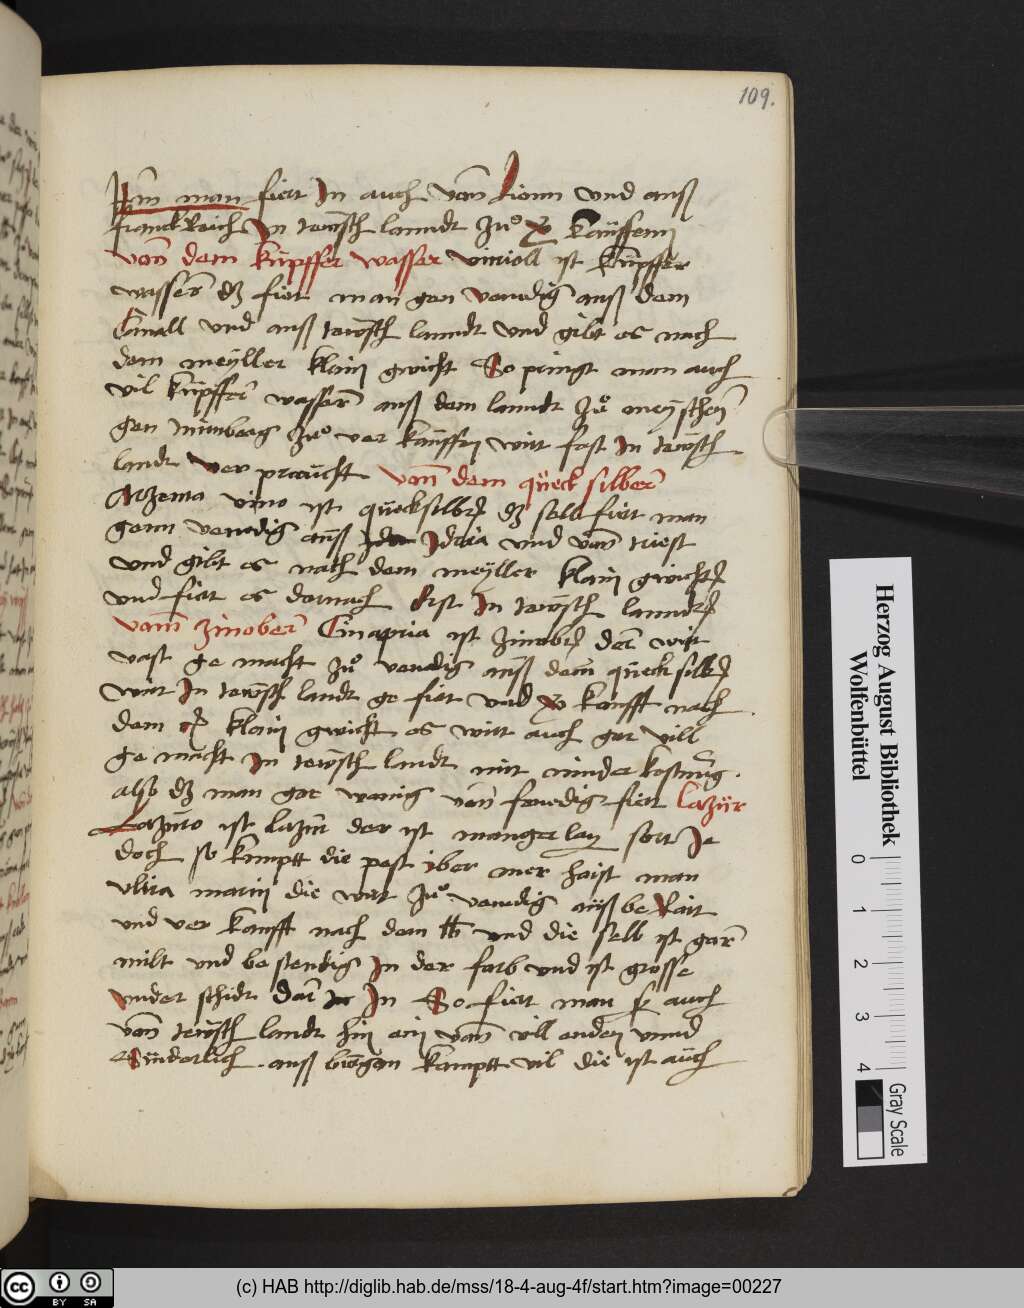 109.
Itm man fiert In auch von Lionn und auß
franckReich In tewsch lanndt zuͦ kauffenn
von dem kupffer wasser vitrioll ist kupffer
wasser dz fiert man gen venedig auß dem
Cinall vnd auß tewsch lanndt vnd gibt es nach
dem meyller klain gwicht So pringt man auch
vil kupffer wasser auß dem lanndt zuͦ meyschen
gen nurnberg zuͦ ver kauffen wirt fast In tewsch
landt ver praucht von dem queck silber
Arzento vivo ist quecksilber dz selb fiert man
genn venedig auß Idria vnd von triest
vnd gibt es nach dem meyller klain gwicht
vnd fiert es dornach Erst In tewsch lanndt
vom zinober Cinapria ist zinober der wirt
vast ge macht zuͦ venedig auß dem queck silber
wirt In tewsch landt ge fiert vnd kaufft nach
dem klain gwicht es wirt auch gar vill
ge macht In tewsch landt mit minder kostung.
also dz man gar wenig von fenedig fiert lazur
Lazuro ist lazur der ist mangerlay sort Je
doch so kumptt die pest yber mer haist man
vltra marin die wirt zuͦ venedig auß be Rait
vnd ver kaufft nach dem lb vnd die selb ist gar
milt vnd be stendig In der farb vnd ist grosse
vnder schidt dar In So fiert man sy auch
von tewsch landt hin ein von vill enden vnnd
Sunderlich auß kumptt vil die ist auch
Herzog August Bibliothek
Wolfenbüttel
0 1 2 3 4
Gray Scale
cc BY SA
(c) HAB http://diglib.hab.de/mss/18-4-aug-4f/start.htm?image=00227